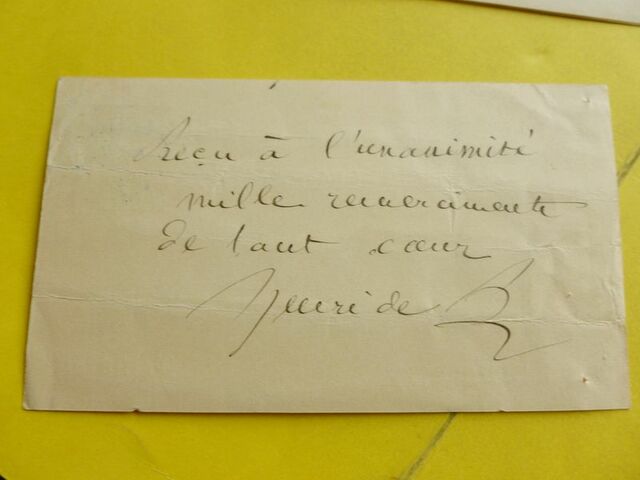 Reçu à l'unanimité
mille remerciments
de tout cœur
Henri de B